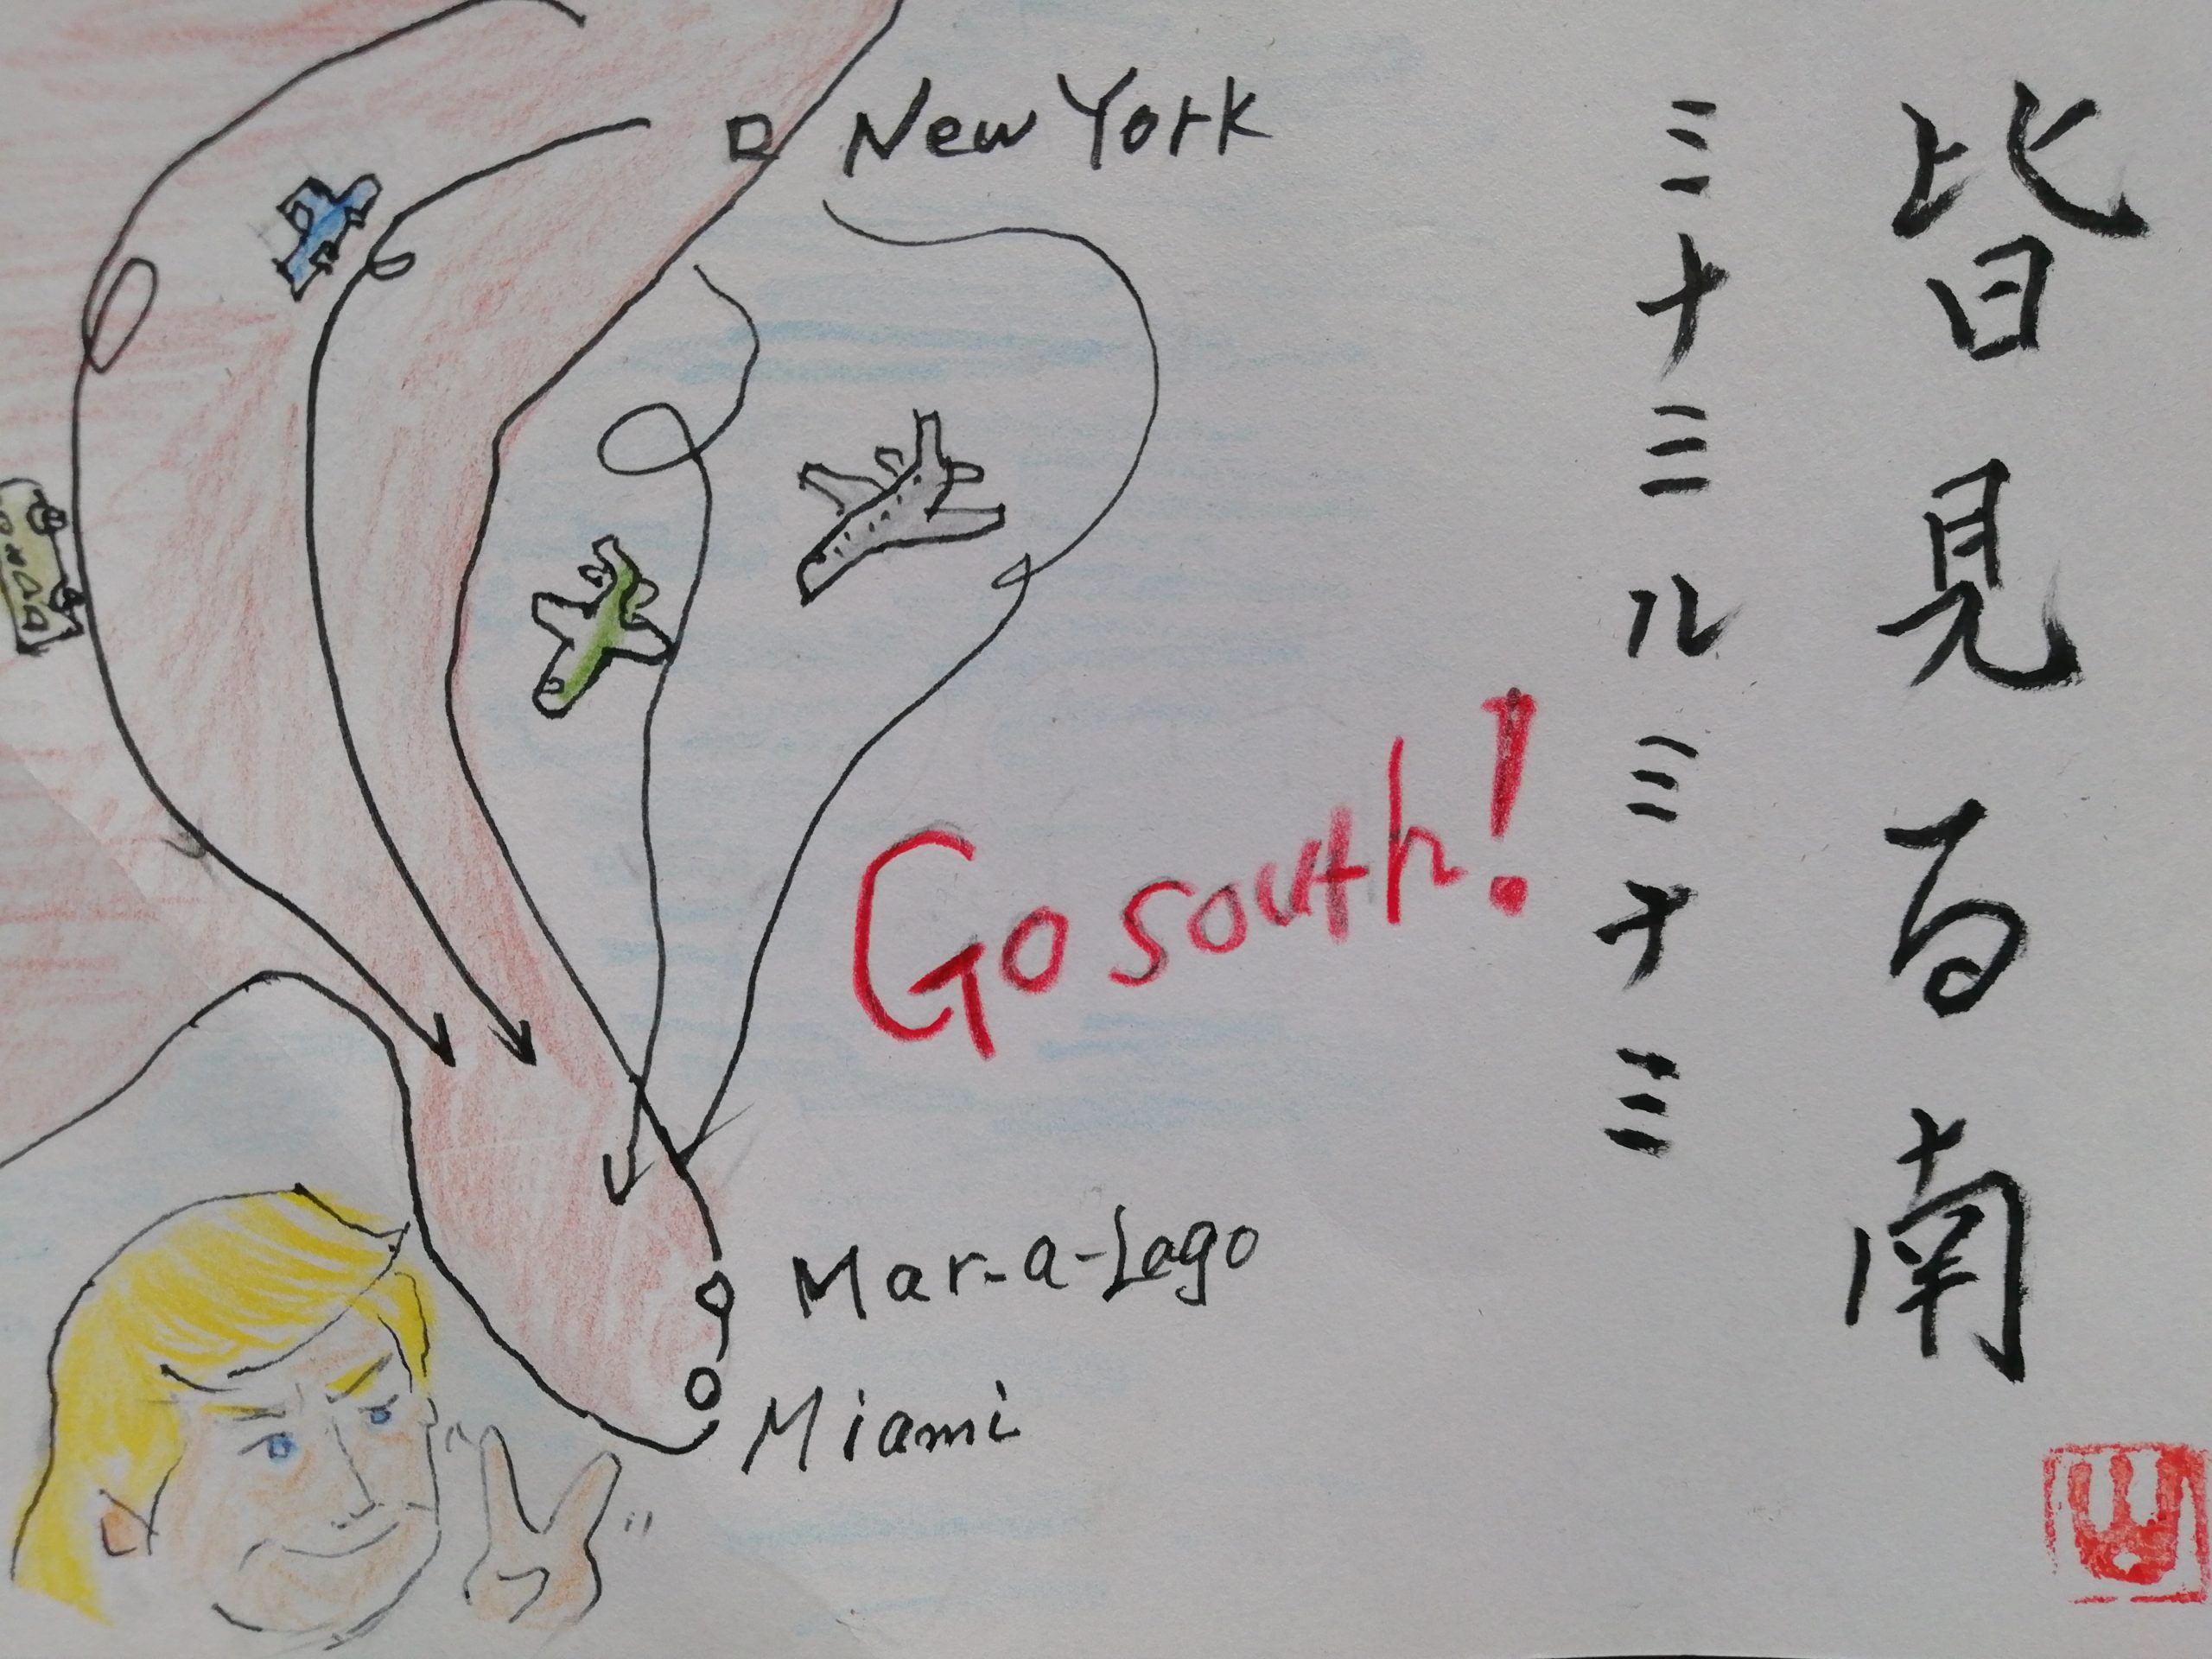 皆見る南
ミナミルミナミ
New York
Go south!
Mar-a-Lago
Miami